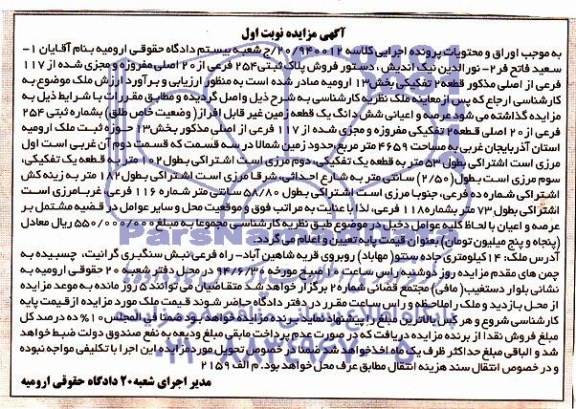 آگهی مزایده نوبت اول
به موجب اوراق و محتویات پرونده اجرایی کلاسه ۲۰/۹۴۰۰۱۲/ج شعبه بیستم دادگاه حقوقی ارومیه بنام آقایان ۱-
سعید فاتح فر ۲- نورالدین نیک اندیش ، دستور فروش پلاک ثبتی ۲۵۴ فرعی از ۲۰ اصلی مفروزه و مجزی شده از ۱۱۷
فرعی از اصلی مذکور قطعه ۲ تفکیکی بخش ۱۳ ارومیه صادر شده است به منظور ارزیابی و برآورد ارزش ملک موضوع به
کارشناسی ارجاع که پس از معاینه ملک نظریه کارشناسی به شرح ذیل واصل گردیده و مطابق مقررات با شرایط ذیل به
مزایده گذاشته می شود عرصه و اعیانی شش دانگ یک قطعه زمین غیر قابل افراز ( وضعیت خاص طلق) بشماره ثبتی ۲۵۴
فرعی از ۲۰ اصلی قطعه ۲ تفکیکی مفروزه و مجزی شده از ۱۱۷ فرعی از اصلی مذکور بخش ۱۳ حوزه ثبت ملک ارومیه
استان آذربایجان غربی به مساحت ۴۶۵۹ متر مربع، حدود زمین شمالا در سه قسمت که قسمت دوم آن غربی است اول
مرزی است اشتراکی بطول ۵۳ متر به قطعه یک تفکیکی، دوم مرزی است اشتراکی بطول ۱۰۲ متر به قطعه یک تفکیکی،
سوم مرزی است بطول (۲/۵۰) سانتی متر به شارع احداثی، شرقا مرزی است اشتراکی بطول ۱۸۲ متر به زینه کش
اشتراکی شماره ده فرعی، جنوبا مرزی است اشتراکی بطول ۵۸/۸۰ سانتی متر شماره ۱۱۶ فرعی غربا مرزی است
اشتراکی بطول ۷۳ متر بشماره ۱۱۸ فرعی، لذا با عنایت به مراتب فوق و موقعیت محل و سایر عوامل در قضیه مشتمل بر
عرصه و اعیان با لحاظ کلیه عوامل دخیل در موضوع طبق نظریه کارشناسی مجموعا به مبلغ ۵۵۰/۰۰۰/۰۰۰ ریال معادل
(پنجاه و پنج میلیون تومان) بعنوان قیمت پایه تعیین و اعلام می گردد.
آدرس ملک: ۱۴ کیلومتری جاده سنتو (مهاباد) روبروی قریه شاهین آباد- راه فرعی نبش سنگبری گرانیت، چسبیده به
چمن های مقدم مزایده روز دوشنبه راس ساعت ۱۰ صبح مورخه ۹۴/۶/۲ در محل دفتر شعبه ۲۰ حقوقی ارومیه به
نشانی بلوار دستغیب (مافی) مجتمع قضائی شماره ۲ برگزار خواهد شد متقاضیان می توانند ۵ روز مانده به موعد مزایده
از محل بازدید و ملک را ملاحظه و راس ساعت مقرر در دفتر دادگاه حاضر شوند قیمت ملک مورد مزایده از قیمت پایه
کارشناسی شروع و هر کس بالاترین مبلغ را پیشنهاد نماید برنده مزایده خواهد بود ضمنا فی المجلس ۱۰% ده درصد کل
مبلغ فروش نقدا از برنده مزایده دریافت که در صورت عدم پرداخت مابقی مبلغ ودیعه به نفع صندوق دولت ضبط خواهد
شد و الباقی مبلغ حداکثر ظرف یک ماه اخذ خواهد شد ضمنا در خصوص تحویل مورد مزایده این اجرا با تکلیفی مواجه نبوده
و در خصوص انتقال سند هزینه انتقال مطابق عرف محل خواهد بود. م الف ۲۱۵۹
مدیر اجرای شعبه ۲۰ دادگاه حقوقی ارومیه